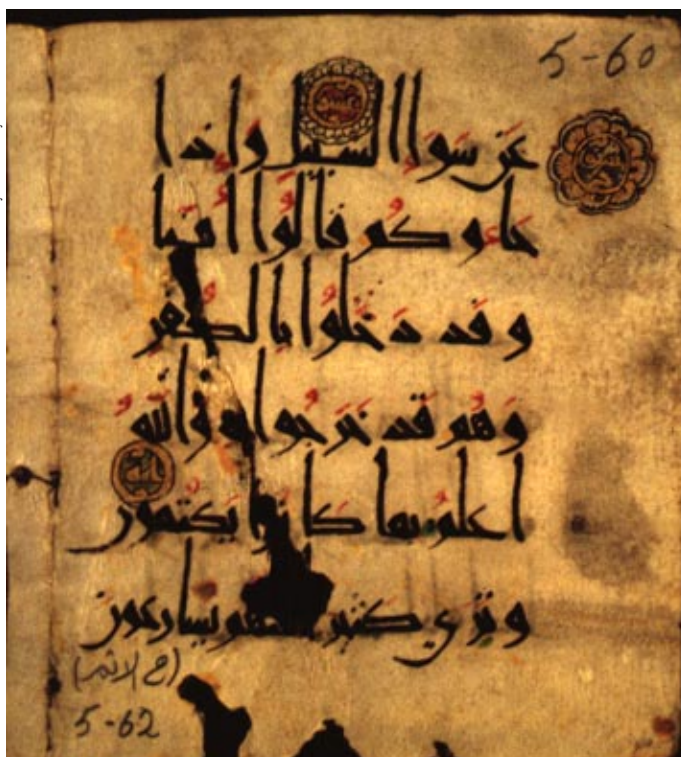 5-60
عَن سَوَآءِ السَّبِيلِ وَإِذَا
جَاءُوكُمْ قَالُوٓا۟ ءَامَنَّا
وَقَد دَّخَلُوا۟ بِالْكُفْرِ
وَهُمْ قَدْ خَرَجُوا۟ بِهِ وَاللَّهُ
أَعْلَمُ بِمَا كَانُوا۟ يَكْتُمُونَ
وَتَرَىٰ كَثِيرًا مِّنْهُمْ يُسَارِعُونَ
(في الاثم)
5-62